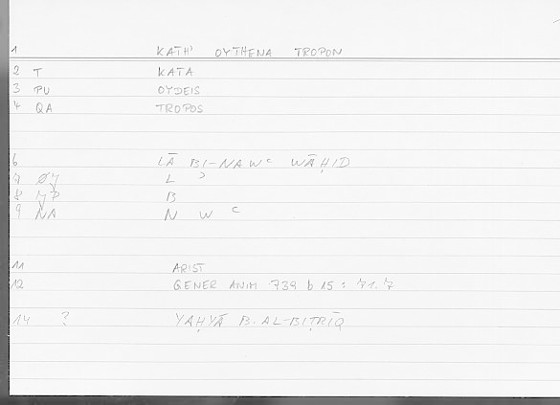 1 KATH' OYTHENA TROPON
2 T KATA
3 PU OYDEIS
4 QA TROPOS
6 LĀ BI-NAWʿ WĀḤID
7 L ʾ
8 B
9 NA N W ʿ
11 ARIST
12 GENER ANIM 739 b 15 : 71.7
14 ? YAḤYĀ B. AL-BIṬRĪQ